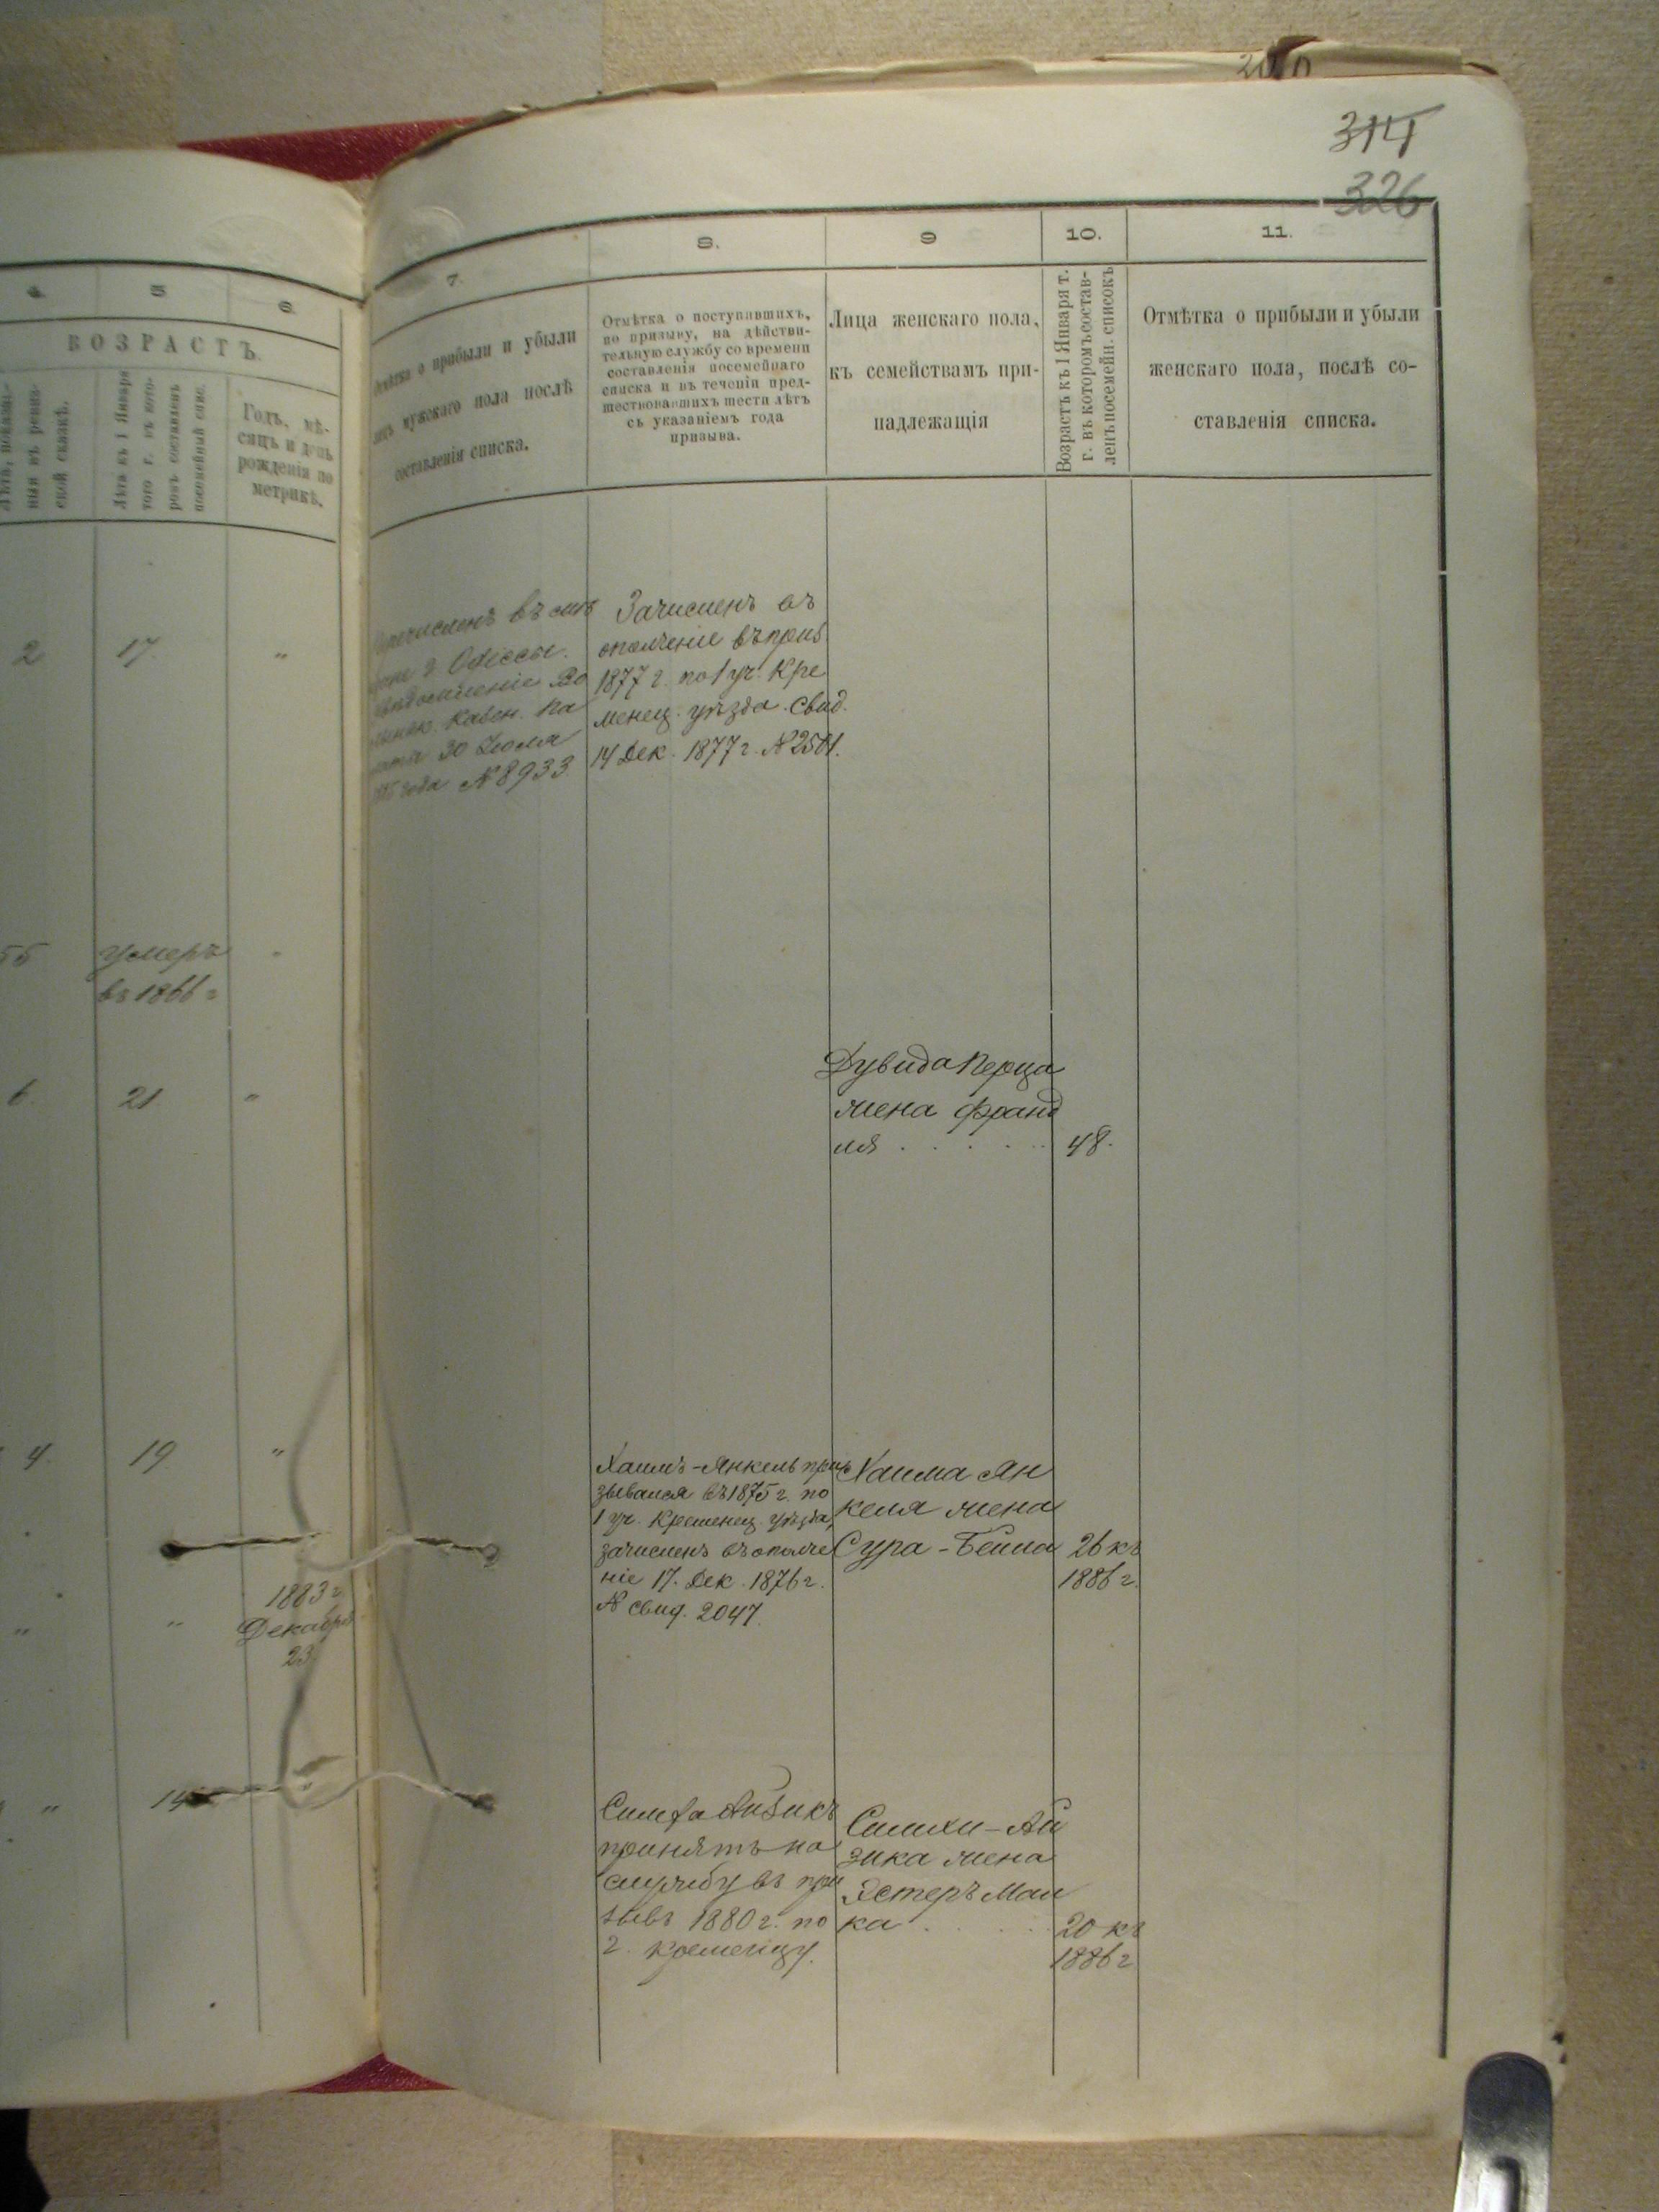 314
326
4.
5
6.
ВОЗРАСТЪ.
Лѣта къ 1 Января
того г. въ кото-
ромъ составленъ
посемейный спис.
Годъ, мѣ-
сяцъ и день
рожденія по
метрикѣ.
2
17.
"
55
умеръ
въ 1866 г
6.
21.
"
4.
19
"
"
"
1883 г
Декабря
23
"
7.
8.
9
10.
11.
о прибыли и убыли
мужскаго пола послѣ
составленія списка.
Отмѣтка о поступившихъ,
по призыву, на дѣйстви-
тельную службу со времени
составленія посемейнаго
списка и въ теченіи пред-
шествовавшихъ шести лѣтъ
съ указаніемъ года
призыва.
Лица женскаго пола,
къ семействамъ при-
надлежащія
Возрастъ къ 1 Января т.
г. въ которомъ состав-
ленъ посемейн. списокъ
Отмѣтка о прибыли и убыли
женскаго пола, послѣ со-
ставленія списка.
въ
г. Одессы.
Во
Казен. Па
30 Іюля
года №8933
Зачисленъ въ
ополченіе въ приз.
1877 г. по 1 уч. Кре
менец. уѣзда. Свид.
14 Дек. 1877 г. №2501.
Дувида Перца
жена Франд
ля . . . . . 48.
Хаимъ-Янкель при
зывался въ 1875 г. по
1 уч. Кременец. уѣзда,
зачисленъ въ ополче
ніе 17. Дек. 1876 г.
№ свид. 2047.
Хаима Ян
келя жена
Сура-Бейла 26 къ
1886 г.
Симха Айзикъ
принятъ на
службу въ при
зывъ 1880 г. по
г. Кременцу.
Симхи-Ай
зика жена
Эстеръ Мал
ка . . . . 20 къ
1886 г